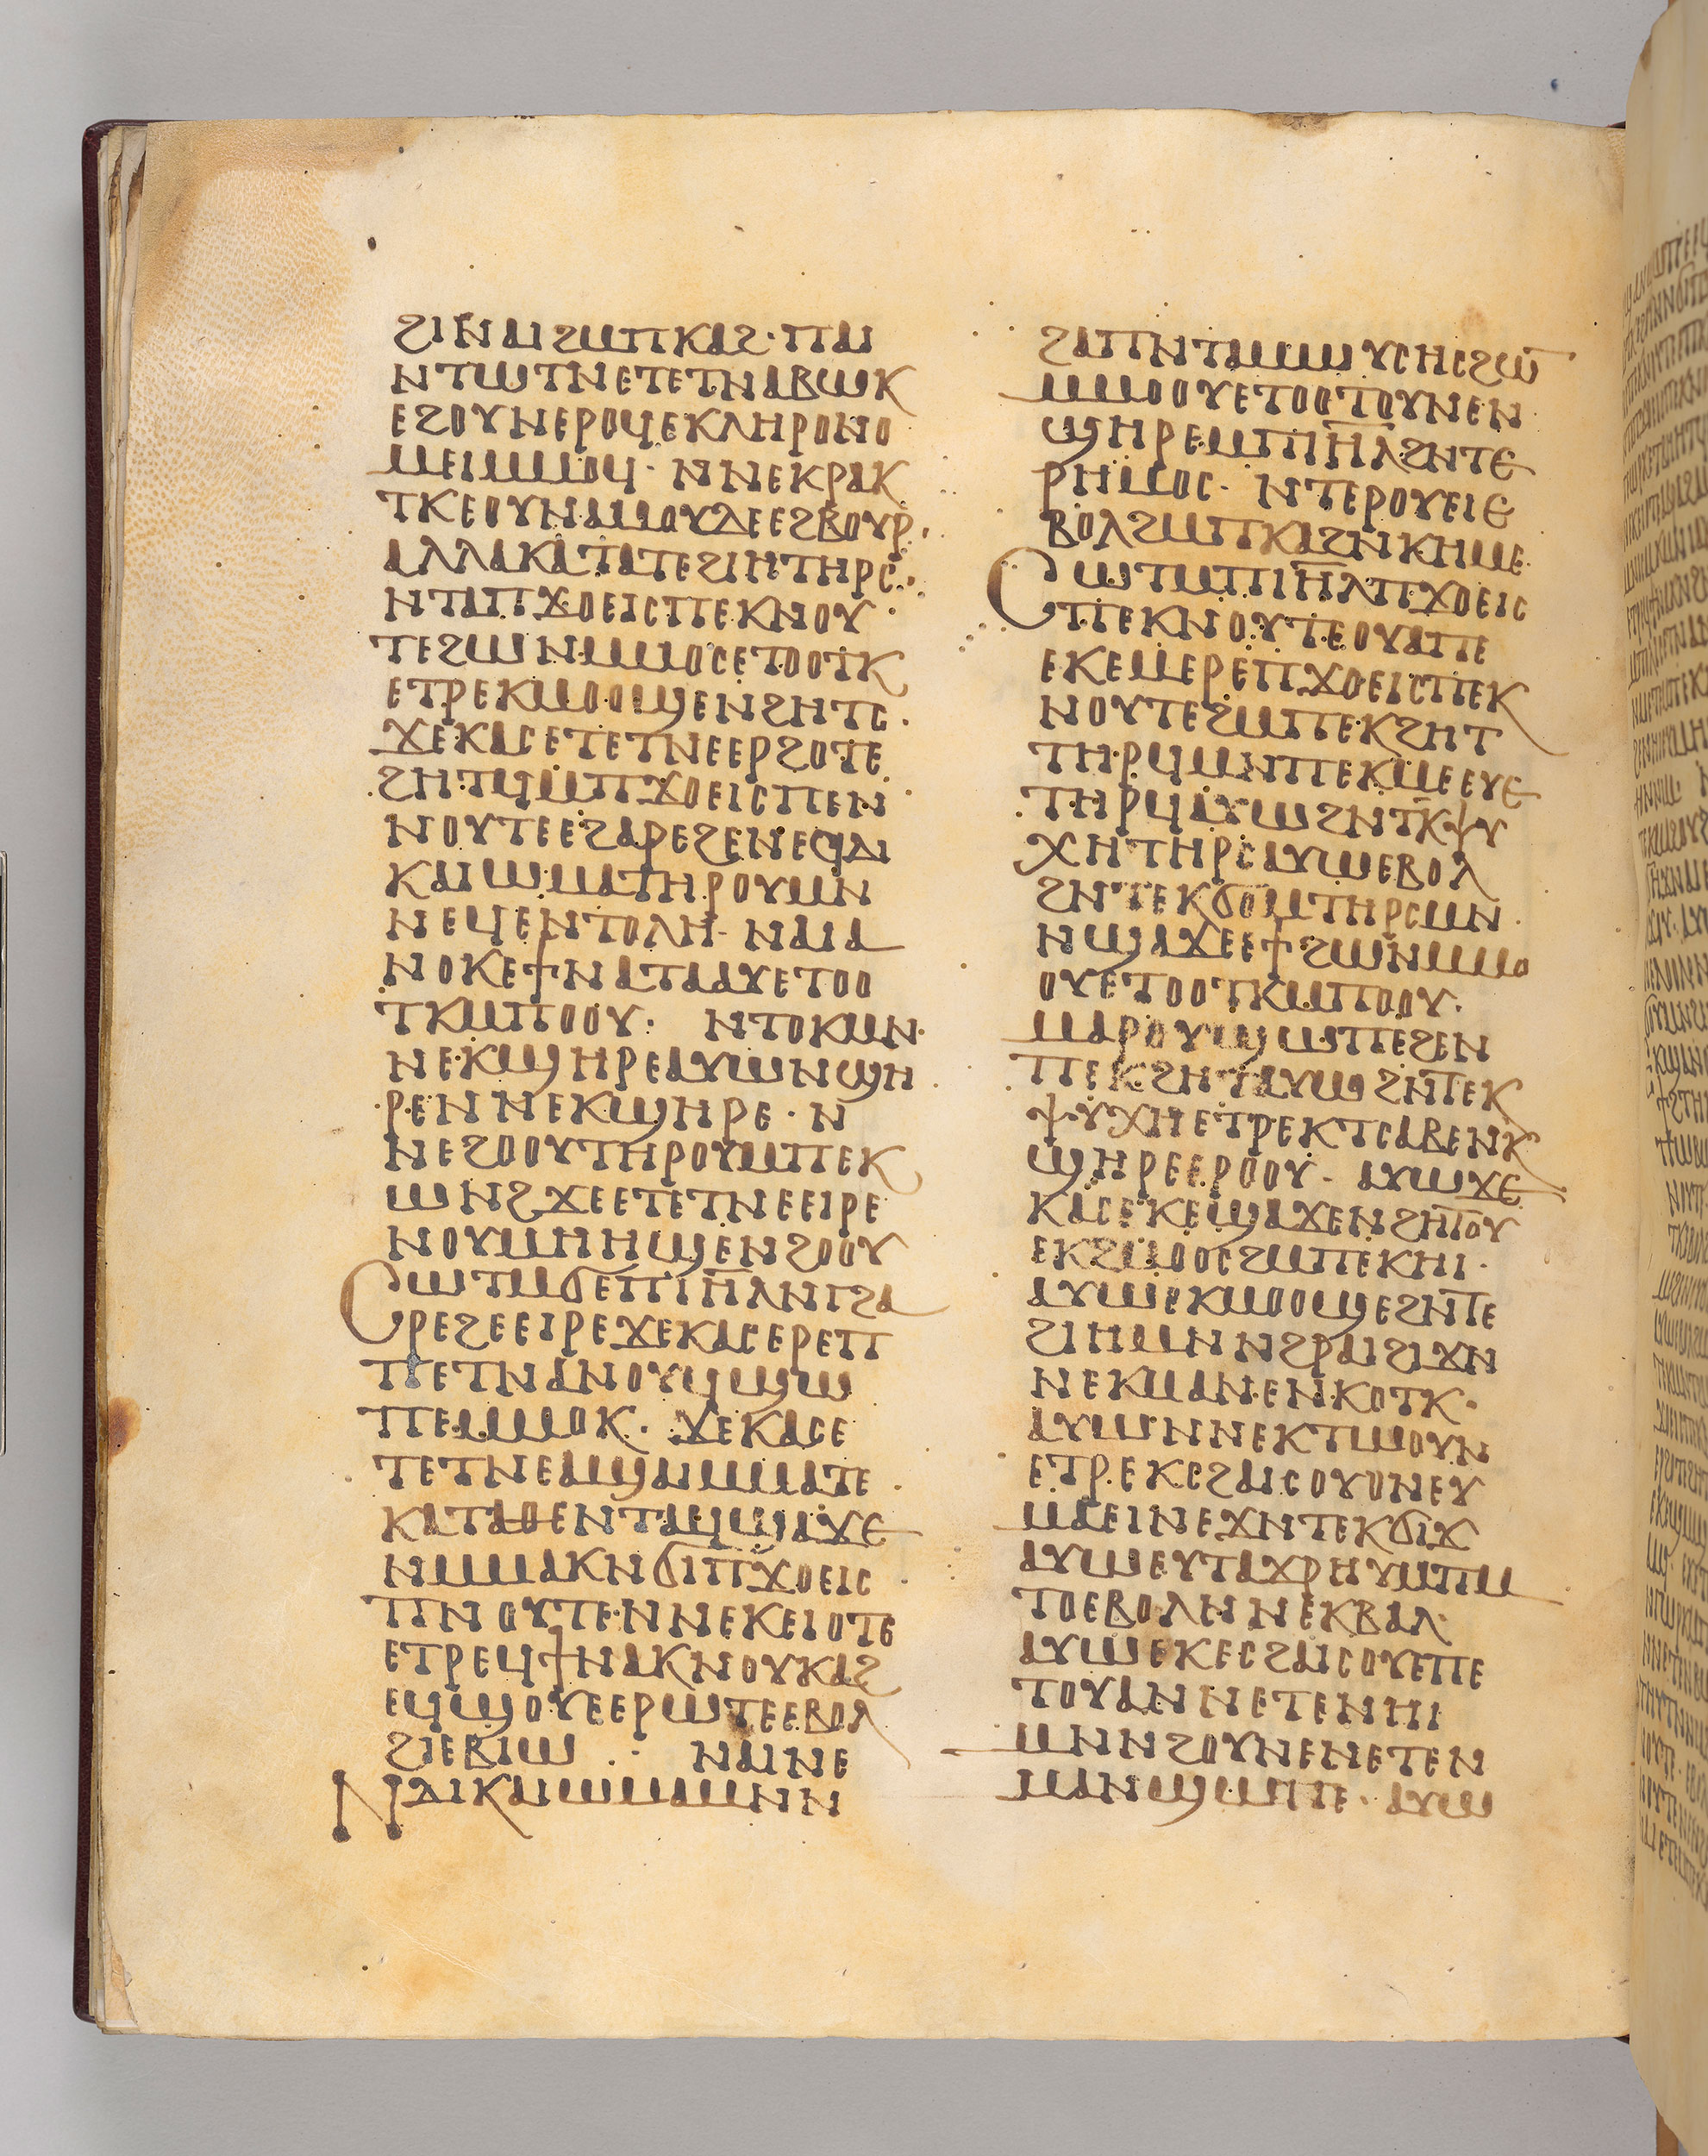 ϨⲒⲚⲀⲒϨⲘⲠⲔⲀϨ·ⲠⲀⲒ
ⲚⲦⲰⲦⲚⲈⲦⲈⲦⲚⲀⲂⲰⲔ
ⲈϨⲞⲨⲚⲈⲢⲞϤⲈⲔⲖⲎⲢⲞⲚⲞ
ⲘⲈⲒⲘⲘⲞϤ· ⲚⲚⲈⲔⲢⲀⲔ
ⲦⲔⲈⲞⲨⲚⲀⲘⲞⲨⲆⲈⲈϨⲂⲞⲨⲢ·
ⲀⲖⲖⲀⲔⲀⲦⲀⲦⲈϨⲒⲎⲦⲎⲢⲤ·
ⲚⲦⲀⲠϪⲞⲈⲒⲤⲠⲈⲔⲚⲞⲨ
ⲦⲈϨⲰⲚⲘⲘⲞⲤⲈⲦⲞⲞⲦⲔ
ⲈⲦⲢⲈⲔⲘⲞⲞϢⲈⲚϨⲎⲦⲤ·
ϪⲈⲔⲀⲤⲈⲦⲈⲦⲚⲈⲈⲢϨⲞⲦⲈ
ϨⲎⲦϤⲘⲠϪⲞⲈⲒⲤⲠⲈⲚ
ⲚⲞⲨⲦⲈⲈϨⲀⲢⲈϨⲈⲚⲈϤⲆⲒ
ⲔⲀⲒⲰⲘⲀⲦⲎⲢⲞⲨⲘⲚ
ⲚⲈϤⲈⲚⲦⲞⲖⲎ· ⲚⲀⲒⲀ
ⲚⲞⲔⲈϯⲚⲀⲦⲀⲀⲨⲈⲦⲞⲞ
ⲦⲔⲘⲠⲞⲞⲨ: ⲚⲦⲞⲔⲘⲚ
ⲚⲈⲔϢⲎⲢⲈⲀⲨⲰⲚϢⲎ
ⲢⲈⲚⲚⲈⲔϢⲎⲢⲈ· Ⲛ
ⲚⲈϨⲞⲞⲨⲦⲎⲢⲞⲨⲘⲠⲈⲔ
ⲰⲚϨϪⲈⲈⲦⲈⲦⲚⲈⲈⲒⲢⲈ
ⲚⲞⲨⲘⲎⲎϢⲈⲚϨⲞⲞⲨ
ⲤⲰⲦⲘϬⲈⲠⲒⲎ̅Ⲗ̅ⲚⲅϨⲀ
ⲢⲈϨⲈⲈⲒⲢⲈϪⲈⲔⲀⲤⲈⲢⲈⲠ
ⲠⲈⲦⲚⲀⲚⲞⲨϤϢⲰ
ⲠⲈⲘⲘⲞⲔ· ϪⲈⲔⲀⲤⲈ
ⲦⲈⲦⲚⲈⲀϢⲀⲒⲘⲘⲀⲦⲈ
ⲔⲀⲦⲀⲐⲈⲚⲦⲀϤϢⲀϪⲈ
ⲚⲘⲘⲀⲔⲚϬⲒⲠϪⲞⲈⲒⲤ
ⲠⲚⲞⲨⲦⲈⲚⲚⲈⲔⲈⲒⲞⲦⲈ
ⲈⲦⲢⲈϤϯⲚⲀⲔⲚⲞⲨⲔⲀϨ
ⲈϤϢⲞⲨⲈⲈⲢⲰⲦⲈⲈⲂⲞⲖ
ϨⲒⲈⲂⲒⲰ ·:· ⲚⲀⲒⲚⲈ
ⲚⲆⲒⲔⲀⲒⲰⲘⲀⲘⲚⲚ
ϨⲀⲠⲚⲦⲀⲘⲰⲨⲤⲎⲤϨⲰ̅Ⲛ̅
ⲘⲘⲞⲞⲨⲈⲦⲞⲞⲦⲞⲨⲚⲈⲚ
ϢⲎⲢⲈⲘⲠⲒⲎ̅Ⲗ̅ϨⲚⲦⲈ
ⲢⲎⲘⲞⲤ· ⲚⲦⲈⲢⲞⲨⲈⲒⲈ
ⲂⲞⲖϨⲘⲠⲔⲀϨⲚⲔⲎⲘⲈ·
ⲤⲰⲦⲘⲠⲒⲎ̅Ⲗ̅ⲠϪⲞⲈⲒⲤ
ⲠⲈⲔⲚⲞⲨⲦⲈⲞⲨⲀⲠⲈ
ⲈⲔⲈⲘⲈⲢⲈⲠϪⲞⲈⲒⲤⲠⲈⲔ
ⲚⲞⲨⲦⲈϨⲘⲠⲈⲔϨⲎⲦ
ⲦⲎⲢϤⲘⲚⲠⲈⲔⲘⲈⲈⲨⲈ
ⲦⲎⲢϤⲀⲨⲰϨⲚⲦⲔⲮⲨ
ⲬⲎⲦⲎⲢⲤⲀⲨⲰⲈⲂⲞⲖ
ϨⲚⲦⲈⲔϬⲞⲘⲦⲎⲢⲤⲘⲚ
ⲚϢⲀϪⲈⲈϯϨⲰⲚⲘⲘⲞ
ⲞⲨⲈⲦⲞⲞⲦⲔⲘⲠⲞⲞⲨ·
ⲘⲀⲢⲞⲨϢⲰⲠⲈϨⲈⲚ
ⲠⲈⲔϨⲎⲦⲀⲨⲰϨⲚⲦⲈⲔ
ⲮⲨⲬⲎⲈⲦⲢⲈⲔⲦⲤⲀⲂⲈⲚⲔ
ϢⲎⲢⲈⲈⲢⲞⲞⲨ· ⲀⲨⲰϪⲈ
ⲔⲀⲤⲈⲔⲈϢⲀϪⲈⲚϨⲎⲦⲞⲨ
ⲈⲔϨⲘⲞⲞⲤϨⲘⲠⲈⲔⲎⲒ·
ⲀⲨⲰⲈⲔⲘⲞⲞϢⲈϨⲚⲦⲈ
ϨⲒⲎⲘⲚⲚϨⲢⲀⲒϨⲒϪⲚ
ⲚⲈⲔⲘⲀⲚⲈⲚⲔⲞⲦⲔ·
ⲀⲨⲰⲚⲚⲈⲔⲦⲰⲞⲨⲚ
ⲈⲦⲢⲈⲔⲤϨⲀⲒⲤⲞⲨⲞⲚⲈⲨ
ⲘⲀⲈⲒⲚⲈϪⲚⲦⲈⲔϬⲒϪ
ⲀⲨⲰⲈⲨⲦⲀϪⲢⲎⲨⲘⲠⲘ
ⲦⲞⲈⲂⲞⲖⲚⲚⲈⲔⲂⲀⲖ·
ⲀⲨⲰⲈⲔⲈⲤϨⲀⲒⲤⲞⲨⲈⲠⲈ
ⲦⲞⲨⲀⲚⲚⲈⲦⲈⲚⲎⲒ
ⲘⲚⲚϨⲞⲨⲚⲈⲚⲈⲦⲈⲚ
ⲘⲀⲚϢⲰⲠⲈ· ⲀⲨⲰ